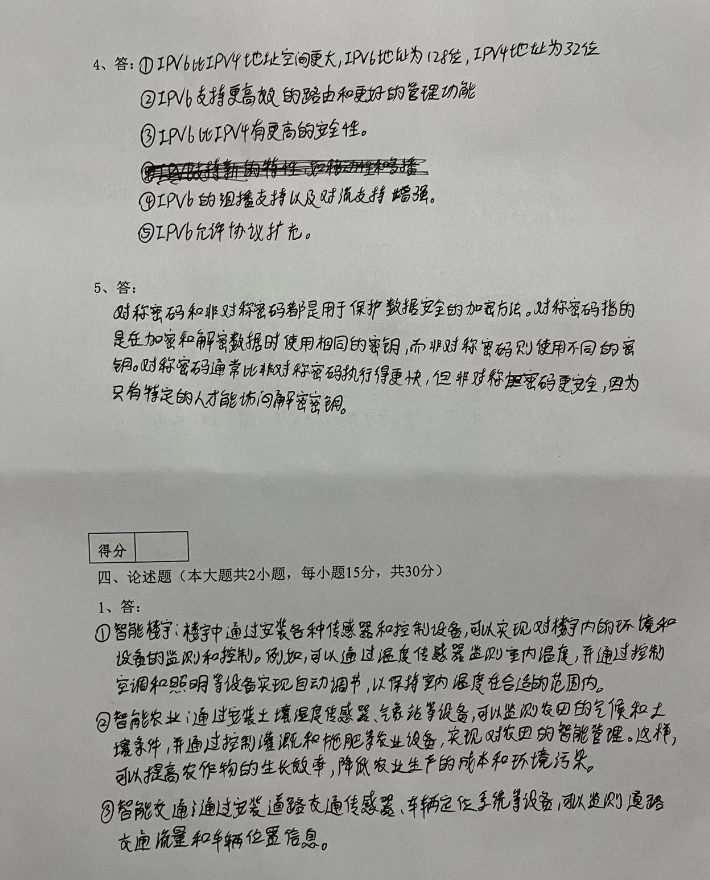 4、答:①IPV6比IPV4地址空间更大,IPV6地址为128位,IPV4地址为32位
②IPV6支持更高效的路由和更好的管理功能
③IPV6比IPV4有更高的安全性。
④IPV6的组播支持以及对流支持增强。
⑤IPV6允许协议扩充。
5、答:
对称密码和非对称密码都是用于保护数据安全的加密方法。对称密码指的
是在加密和解密数据时使用相同的密钥,而非对称密码则使用不同的密
钥。对称密码通常比非对称密码执行得更快,但非对称密码更安全,因为
只有特定的人才能访问解密密钥。
得分
四、论述题(本大题共2小题,每小题15分,共30分)
1、答:
①智能楼宇:楼宇中通过安装各种传感器和控制设备,可以实现对楼宇内的环境和
设备的监测和控制。例如,可以通过温度传感器监测室内温度,并通过控制
空调和照明等设备实现自动调节,以保持室内温度在合适的范围内。
②智能农业:通过安装土壤湿度传感器、气象站等设备,可以监测农田的气候和土
壤条件,并通过控制灌溉和施肥等农业设备,实现对农田的智能管理。这样,
可以提高农作物的生长效率,降低农业生产的成本和环境污染。
③智能交通:通过安装道路交通传感器、车辆定位系统等设备,可以监测道路
交通流量和车辆位置信息。